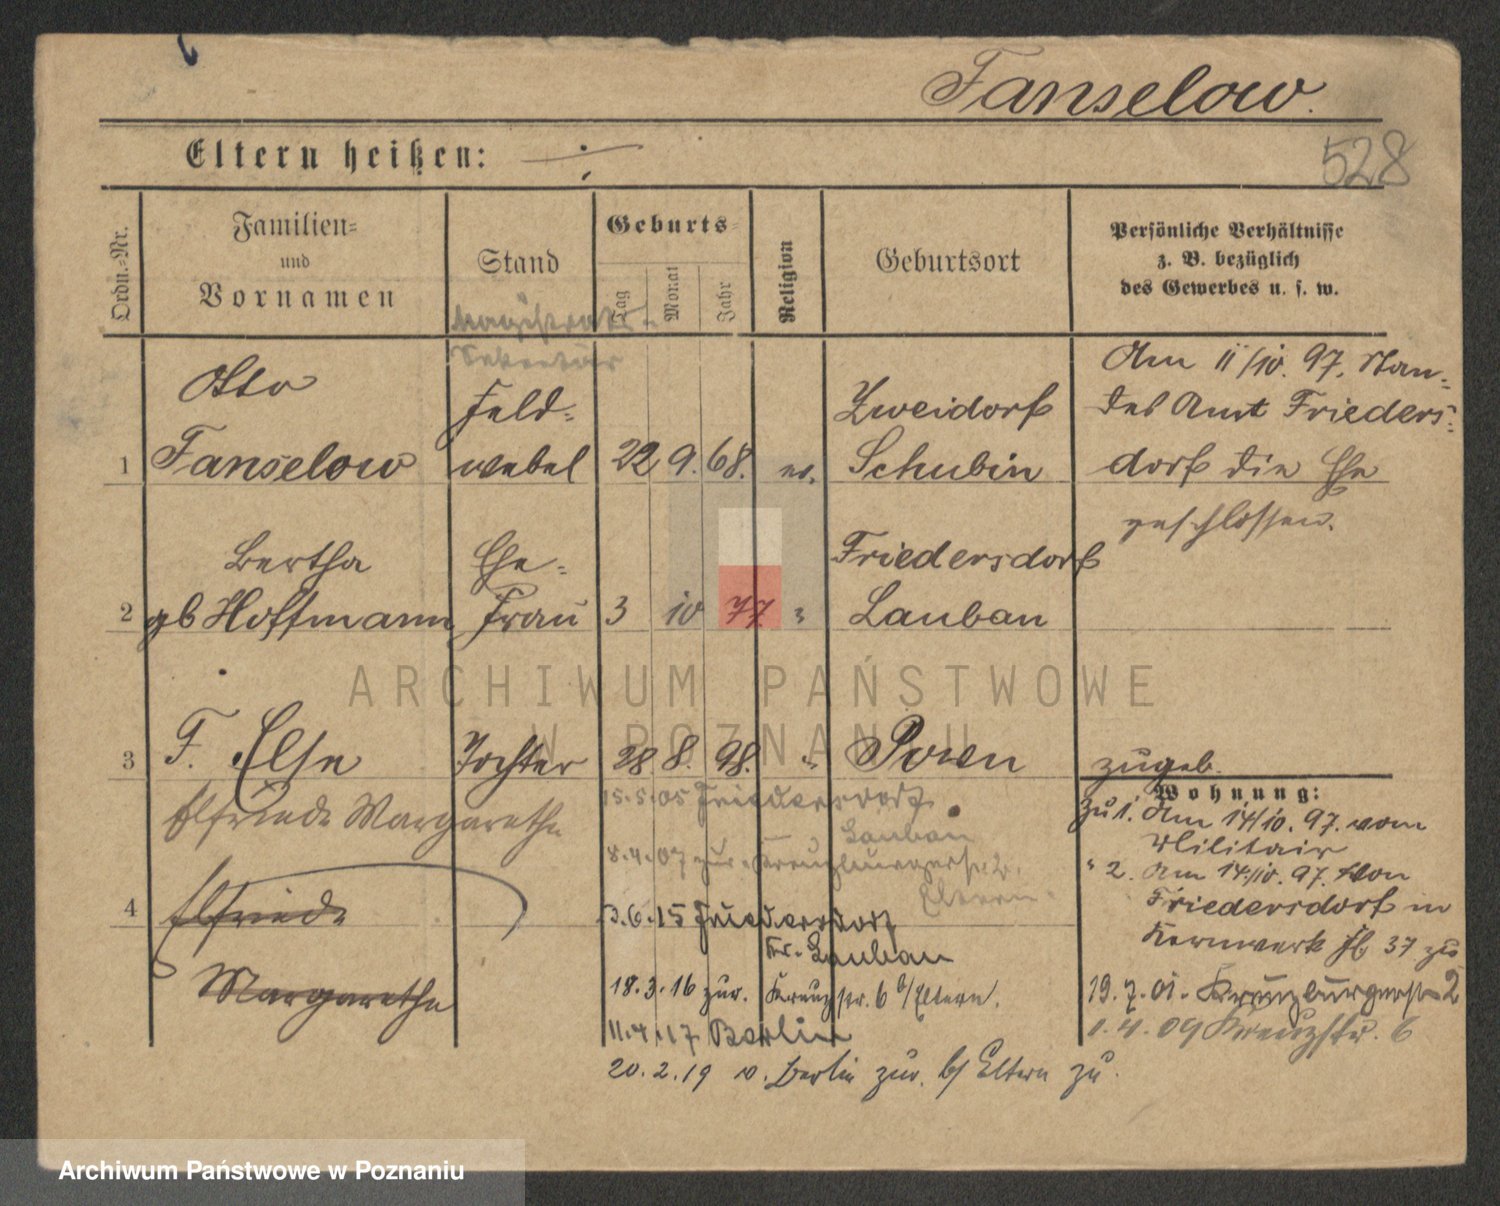 Fanselow.
528
Eltern heißen: ÷
Ordn.=Nr.
Familien=
und
Vornamen
Stand
Geburts=
Tag
Monat
Jahr
Religion
Geburtsort
Persönliche Verhältnisse
z. B. bezüglich
des Gewerbes u. s. w.
Magistrats-
Sekretär
1
Otto
Fanselow
Feld-
webel
22 9. 68. ev.
Zweidorf
Schubin
Am 11/10. 97. Stan-
des Amt Frieders-
dorf die Ehe
geschlossen.
2
Bertha
gb Hoffmann
Ehe-
Frau
3 10 77. "
Friedersdorf
Lauban
3
F. Else
Tochter
28 8. 98. "
Posen
zugeb.
Elfriede Margarethe
15.5.05 Friedersdorf
Lauban
8.4.07 zur. Kreuzburgerstr. 2.
Eltern
4
Elfriede
Margarethe
3.6.15 Friedersdorf
Kr. Lauban
18.3.16 zur. Kreuzstr. 6 b/Eltern.
11.4.17 Berlin
20.2.19 v. Berlin zur. b/ Eltern zu.
Wohnung:
Zu 1. Am 14/10. 97. vom
Militair
" 2. Am 14/10. 97. von
Friedersdorf in
Kernwerk Fl. 37 zu
19.7.01. Kreuzburgerstr 2
1.4.09 Kreuzstr. 6
ARCHIWUM PAŃSTWOWE
W POZNANIU
Archiwum Państwowe w Poznaniu